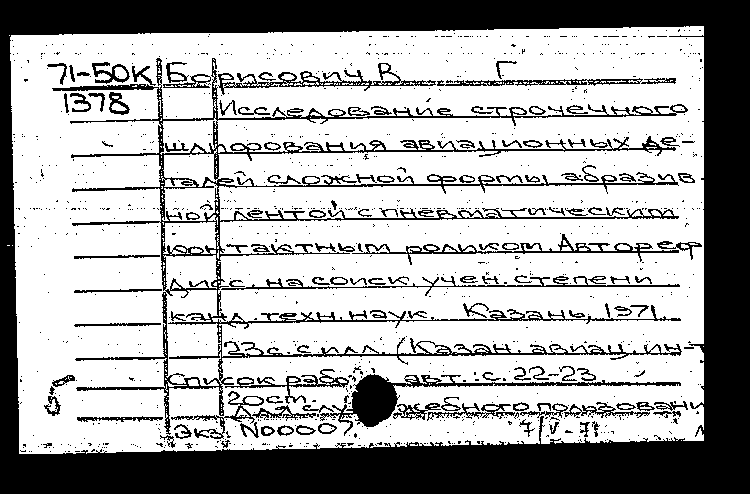 71-50К Борисович, В Г
1378 Исследование строчечного
шлифования авиационных де-
талей сложной формы абразив-
ной лентой с пневматическим
контактным роликом. Автореф
дисс. на соиск. учен. степени
канд. техн. наук. Казань, 1971.
23с. с илл. (Казан. авиац. ин-т
Список рабо авт.: с. 22-23.
20 ст.
Для слу жебного пользовани
Экз. N00007. 7/V-71